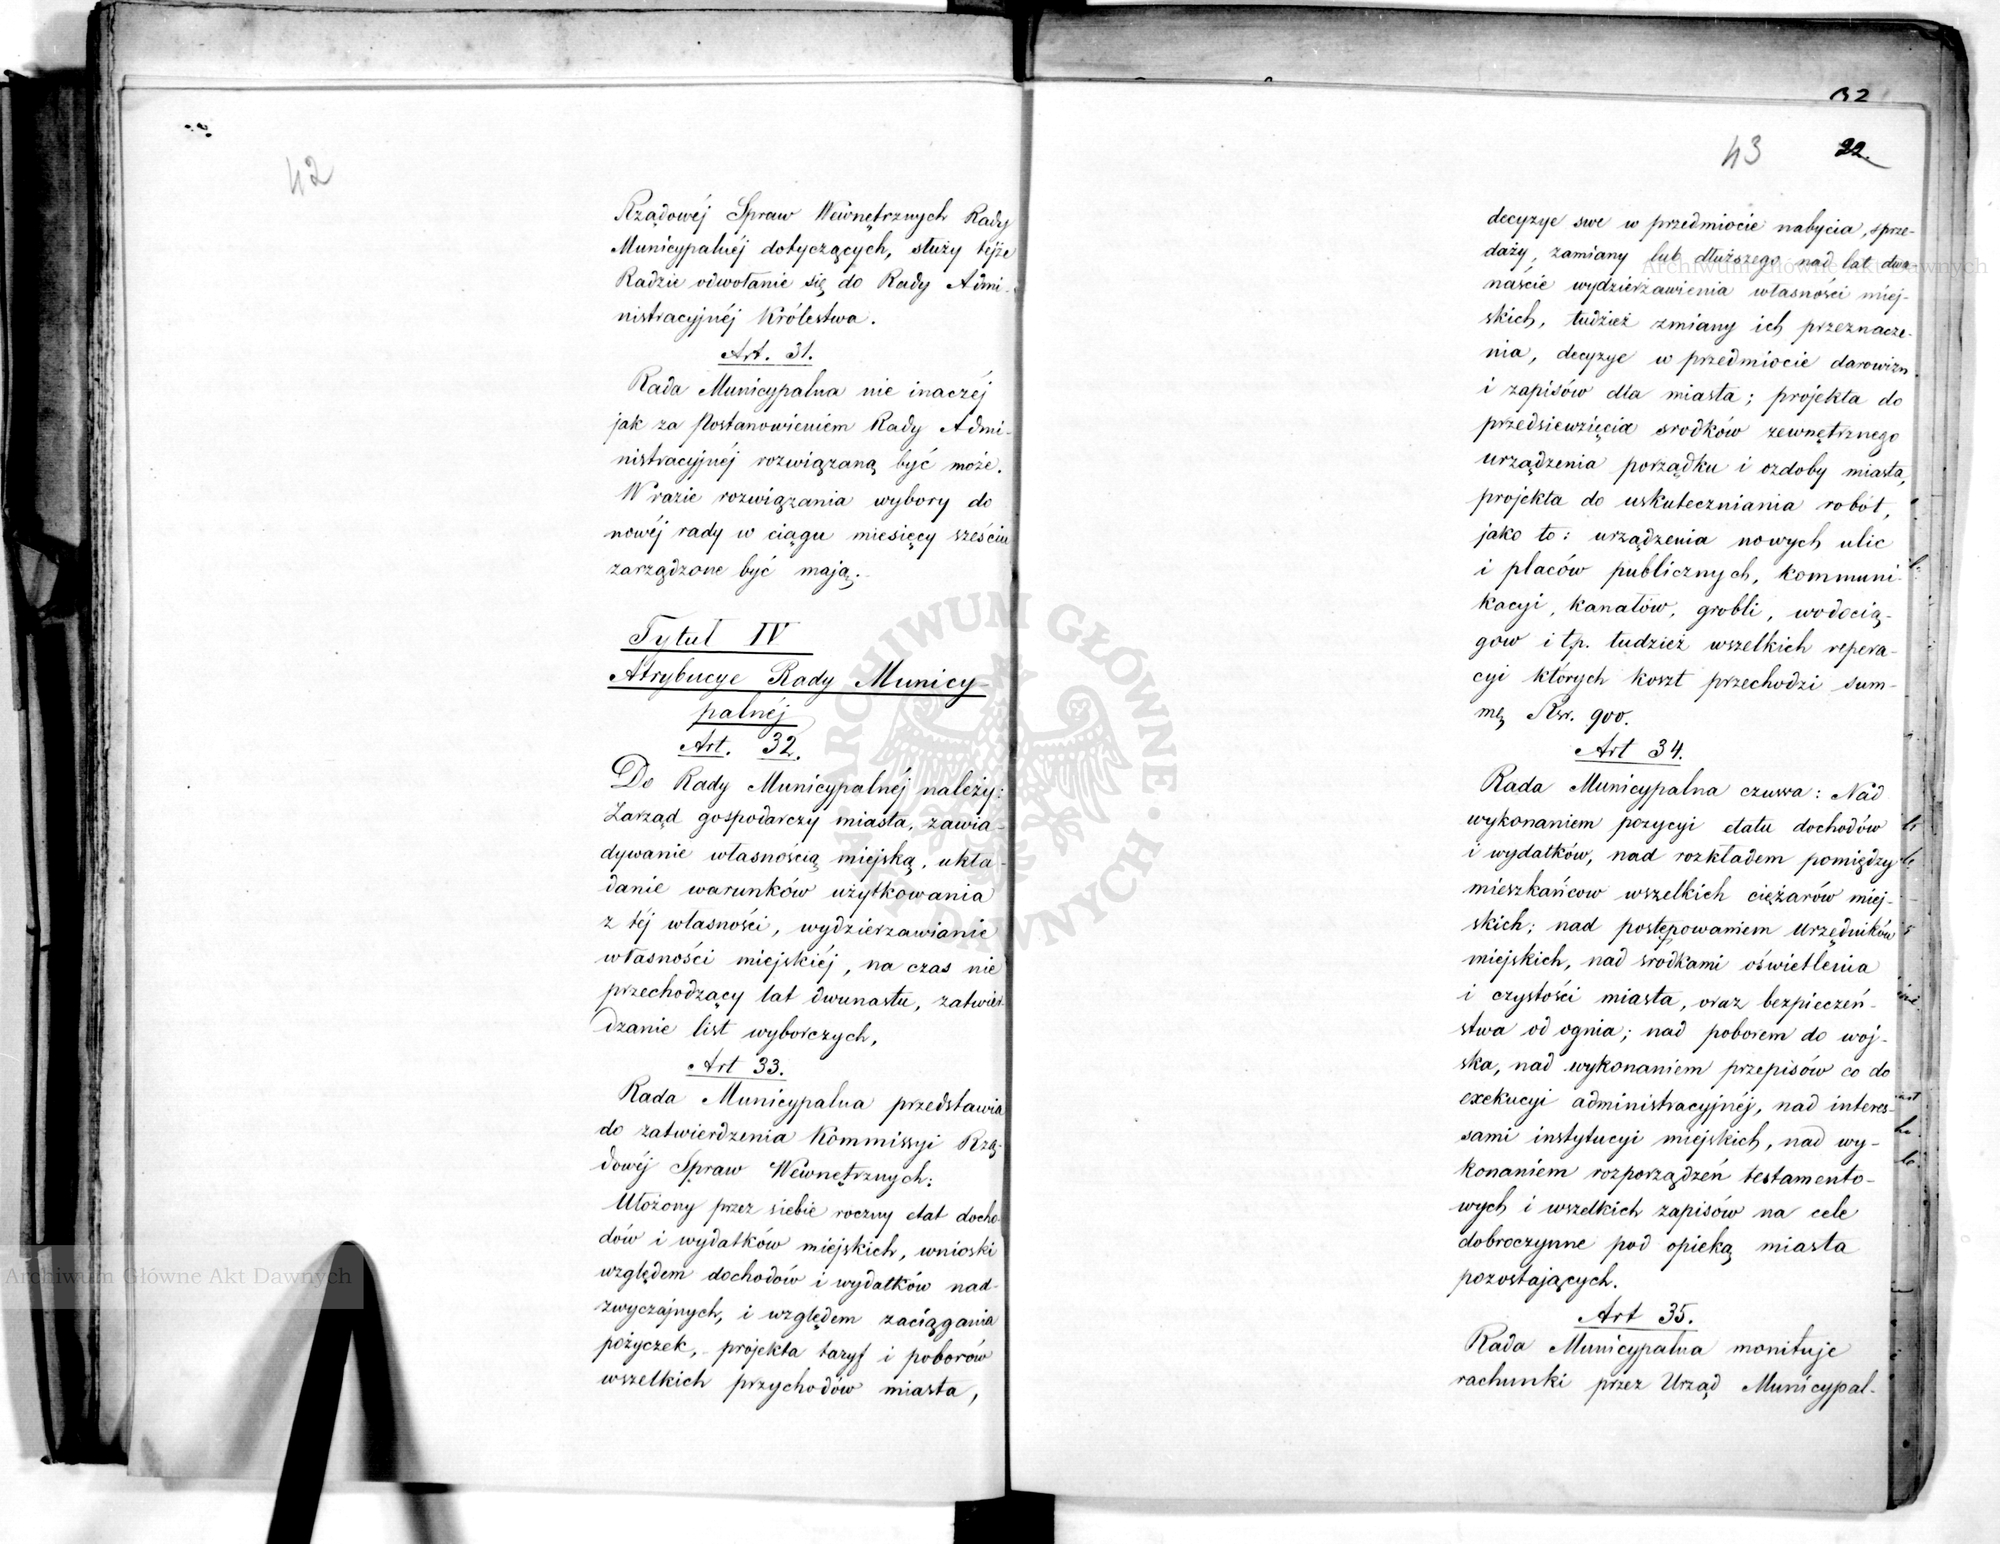 42
Rządowéj Spraw Wewnętrznych Rady
Municypalnéj dotyczących, służy tejże
Radzie odwołanie się do Rady Admi-
nistracyjnéj Królestwa.
Art. 31.
Rada Municypalna nie inaczéj
jak za Postanowieniem Rady Admi-
nistracyjnéj rozwiązaną być może.
W razie rozwiązania wybory do
nowéj rady w ciągu miesięcy sześciu
zarządzone być mają.
Tytuł IV
Atrybucye Rady Municy-
palnéj
Art. 32.
Do Rady Municypalnéj należy:
Zarząd gospodarczy miasta, zawia-
dywanie własnością miejską, ukła-
danie warunków użytkowania
z téj własności, wydzierzawianie
własności miejskiéj, na czas nie
przechodzący lat dwunastu, zatwier-
dzanie list wyborczych,
Art 33.
Rada Municypalna przedstawia
do zatwierdzenia Kommissyi Rzą-
dowéj Spraw Wewnętrznych:
Ułożony przez siebie roczny etat docho-
dów i wydatków miejskich, wnioski
względem dochodów i wydatków nad-
zwyczajnych, i względem zaciągania
pożyczek, projekta taryf i poborów
wszelkich przychodów miasta,
32
43 22.
decyzye swe w przedmiocie nabycia, sprze-
daży, zamiany lub dłuższego nad lat dwa-
naście wydzierżawienia własności miej-
skich, tudzież zmiany ich przeznacze-
nia, decyzye w przedmiocie darowizn
i zapisów dla miasta; projekta do
przedsiewzięcia srodków zewnętrznego
urządzenia porządku i ozdoby miasta,
projekta do uskuteczniania robót,
jako to: urządzenia nowych ulic
i placów publicznych, kommuni-
kacyi, kanałów, grobli, wodocią-
gow i t.p. tudzież wszelkich repera-
cyi których koszt przechodzi sum-
mę Rsr. 900.
Art 34.
Rada Municypalna czuwa: Nad
wykonaniem pozycyi etatu dochodów
i wydatków, nad rozkładem pomiędzy
mieszkańcow wszelkich ciężarów miej-
skich; nad postępowaniem Urzędników
miejskich, nad srodkami oświetlenia
i czystości miasta, oraz bezpieczeń-
stwa od ognia; nad poborem do woj-
ska, nad wykonaniem przepisów co do
exekucyi administracyjnéj, nad interes-
sami instytucyi miejskich, nad wy-
konaniem rozporządzeń testamento-
wych i wszelkich zapisów na cele
dobroczynne pod opieką miasta
pozostających.
Art 35.
Rada Municypalna monituje
rachunki przez Urząd Municypal-
ARCHIWUM GŁÓWNE AKT DAWNYCH
Archiwum Główne Akt Dawnych
Archiwum Główne Akt Dawnych